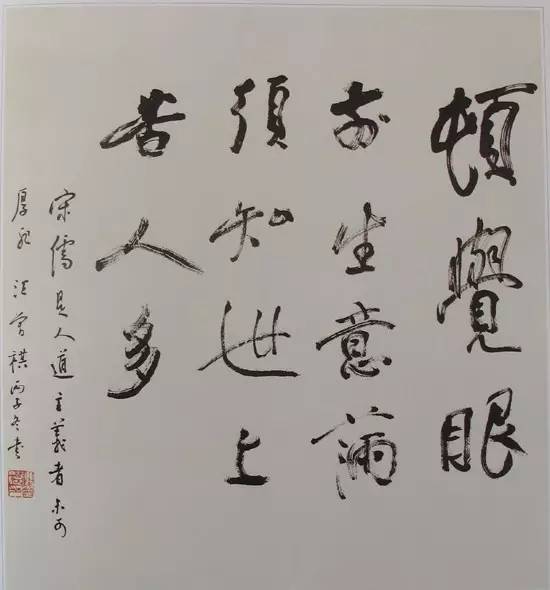 頓覺眼
前生意滿
須知世上
苦人多
宋儒是人道主義者未可
厚非 汪曾祺 丙子冬書